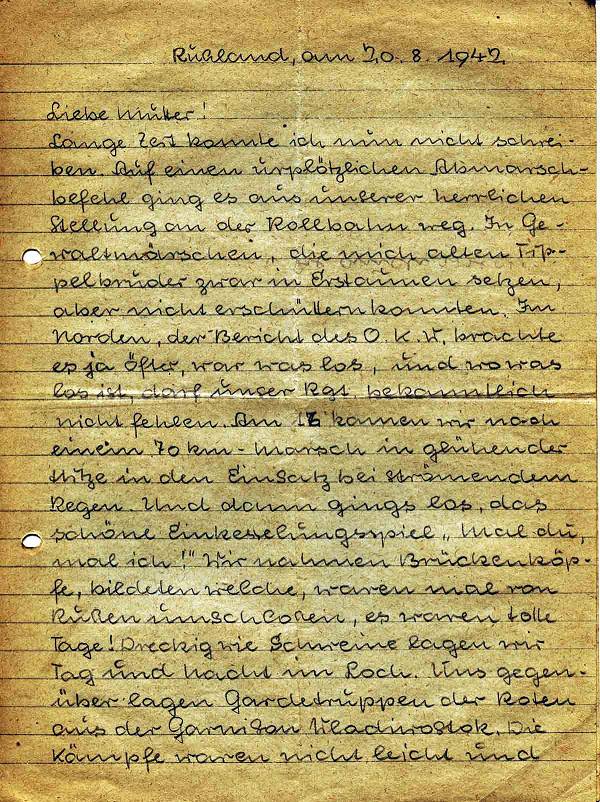 Rußland, am 20. 8. 1942
Liebe Mutter!
Lange Zeit konnte ich nun nicht schrei-
ben. Auf einen urplötzlichen Abmarsch-
befehl ging es aus unserer herrlichen
Stellung an der Rollbahn weg. In Ge-
waltmärschen, die mich alten Tip-
pelbruder zwar in Erstaunen setzen,
aber nicht erschüttern konnten. Im
Norden, der Bericht des O.K.W. brachte
es ja öfter, war was los, und wo was
los ist, darf unser Rgt. bekanntlich
nicht fehlen. Am kamen wir nach
einem 70 km-Marsch in glühender
Hitze in den Einsatz bei strömendem
Regen. Und dann gings los, das
schöne Einkesselungsspiel „Mal du,
mal ich!" Wir nahmen Brückenköp-
fe, bildeten welche, waren mal von
Rußen umschloßen, es waren tolle
Tage! Dreckig wie Schweine lagen wir
Tag und Nacht im Loch. Uns gegen-
über lagen Gardetruppen der Roten
aus der Garnison Wladiwostok. Die
Kämpfe waren nicht leicht und